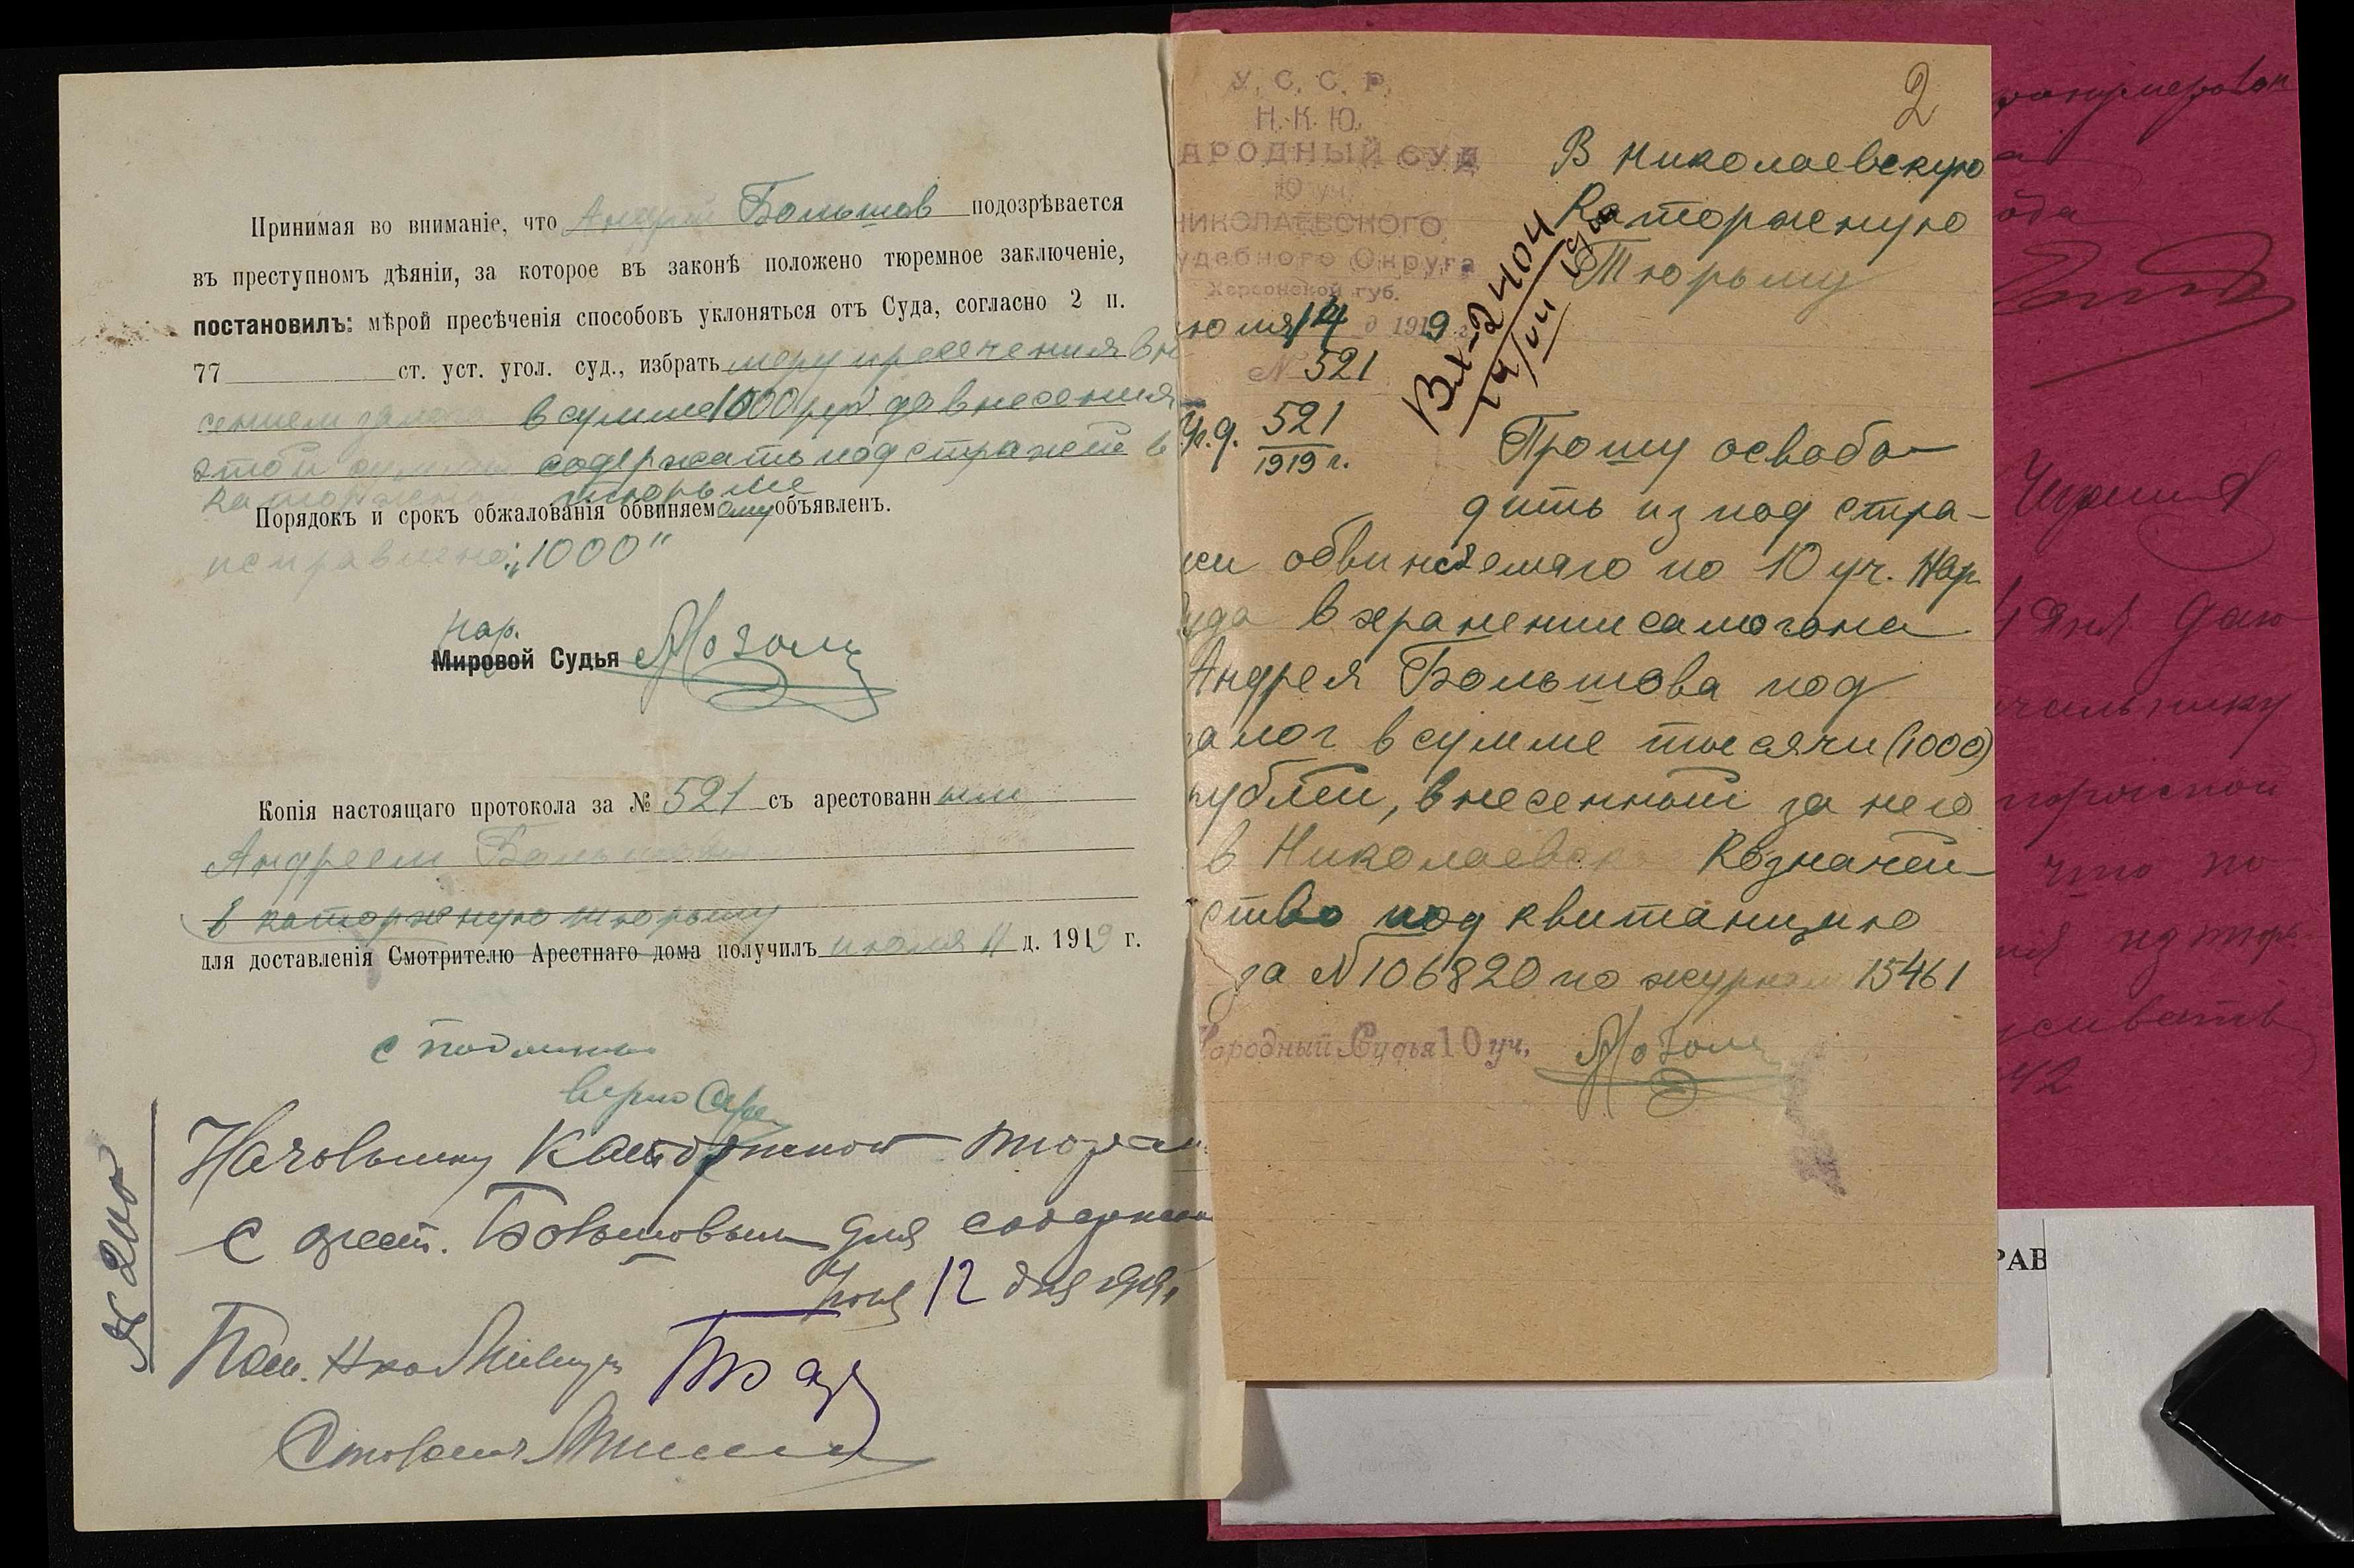 Принимая во вниманіе, что Андрей Большов подозрѣвается
въ преступномъ дѣяніи, за которое въ законѣ положено тюремное заключеніе,
постановилъ: мѣрой пресѣченія способовъ уклоняться отъ Суда, согласно 2 п.
77 ст. уст. угол. суд., избрать меру пресечения вне
сением залога в сумме 1000 руб до внесения
этой суммы содержать под стражей в
каторжной тюрьме
Порядокъ и срокъ обжалованія обвиняемому объявленъ.
исправлено: „1000"
нар.
Мировой Судья
Копія настоящаго протокола за № 521 съ арестованным
Андреем Большовым
в каторжную тюрьму
для доставленія Смотрителю Арестнаго дома получилъ июля 11 д. 1919 г.
с подлинным
верно
Начальнику Каторжной тюрьмы
с арест. Большовым для содержания
12 дня 1919
Пом.
№ 200
2
У. С. С. Р.
Н. К. Ю.
АРОДНЫЙ СУД
10 уч.
НИКОЛАЕВСКОГО
удебного Округа
Херсонской губ.
июля 14 д 1919 г.
№ 521
Ур. д. 521
1919 г.
В Николаевскую
Каторжную
Тюрьму
Вх-2404
14/VII
Прошу освобо-
дить из под стра-
жи обвиняемаго по 10 уч. Нар.
уда в хранении самогона
Андрея Большова под
залог в сумме тысячи (1000)
рублей, внесенной за него
в Николаевск Козначей-
ство под квитанцию
за № 106820 по журналу 15461
Народный Судья 10 уч.
что по
42
РАВ